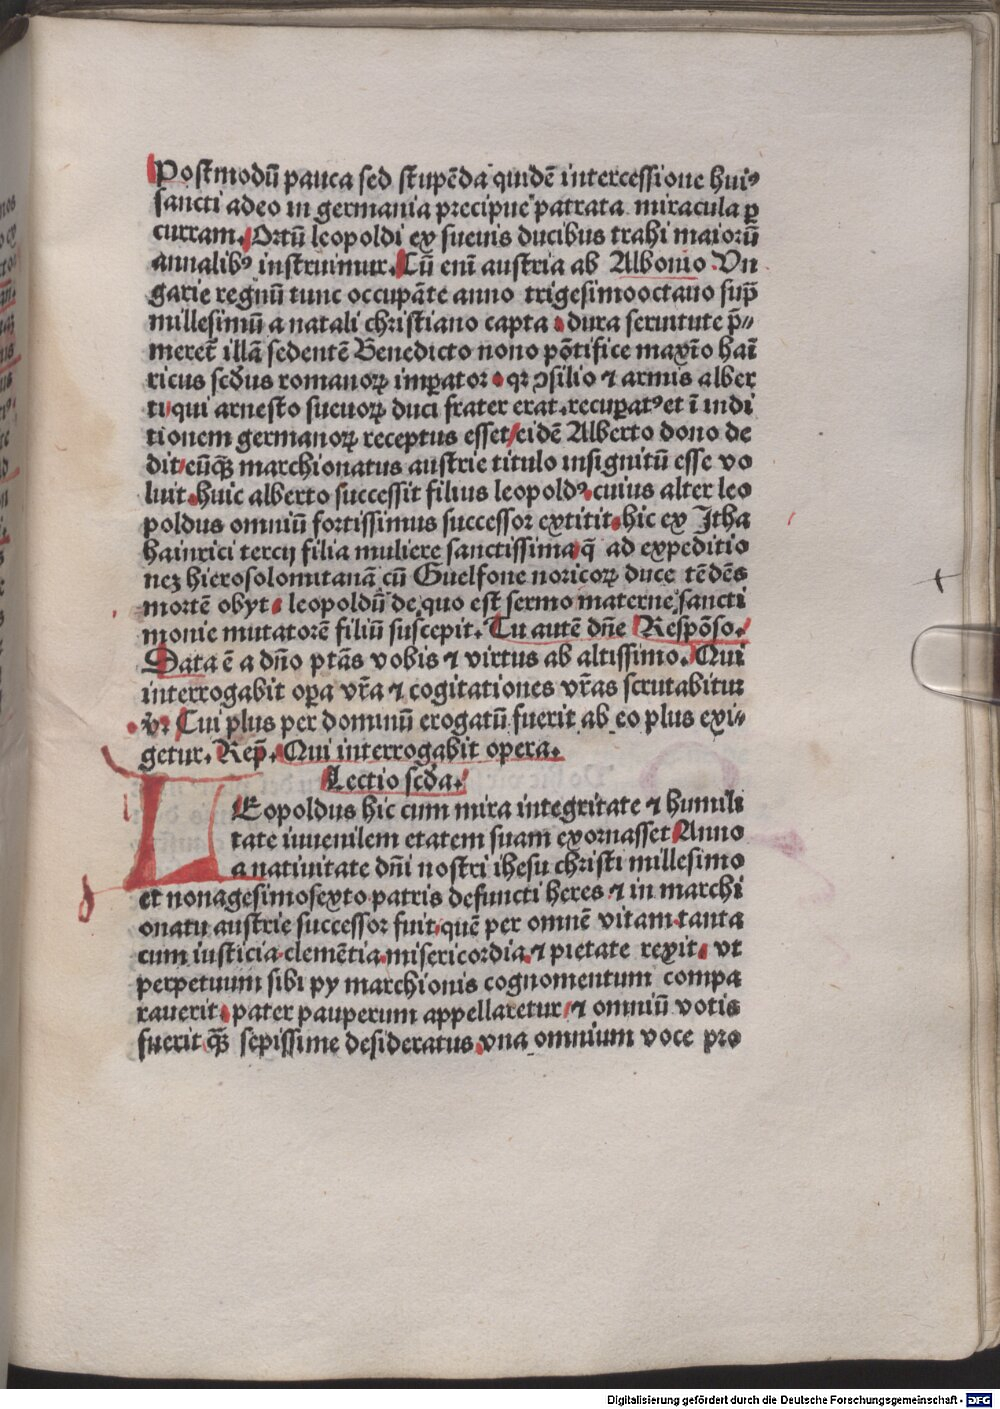 Postmodū pauca sed stupēda quidē intercessione huiꝰ
sancti adeo in germania precipue patrata miracula ꝑ
curram. Ortū leopoldi ex sueuis ducibus trahi maiorū
annalibꝰ instruimur. Cū enī austria ab Albonio Vn
garie regnū tunc occupāte anno trigesimooctauo sup̄
millesimū a natali christiano capta. dura seruitute p̄⸗
meret̄ illā sedentē Benedicto nono pōtifice maxīo haī
ricus scd̄us romanoꝝ imꝑator. qr ꝯsilio ⁊ armis alber
ti qui arnesto sueuoꝝ duci frater erat. recuꝑatꝰ et ī indi
tionem germanoꝝ receptus esset/ eidē Alberto dono de
dit/ eūqꝫ marchionatus austrie titulo insignitū esse vo
luit. huic alberto successit filius leopoldꝰ. cuius alter leo
poldus omniū fortissimus successor extitit. hic ex Itha
hainrici tercij filia muliere sanctissima q̄ ad expeditio
neꝫ hierosolomitanā cū Guelfone noricoꝝ duce tēdēs
mortē obyt. leopoldū de quo est sermo materne sancti
monie mutatorē filiū suscepit. Tu autē dn̄e Respōso.
Data ē a dn̄o ptās vobis ⁊ virtus ab altissimo. Qui
interrogabit oꝑa vr̄a ⁊ cogitationes vr̄as scrutabitur
v̄r Cui plus per dominū erogatū fuerit ab eo plus exi⸗
getur. Rep̄. Qui interrogabit opera.
Lectio scd̄a.
LEopoldus hic cum mira integritate ⁊ humili
tate iuuenilem etatem suam exornasset Anno
a natiuitate dn̄i nostri ihesu christi millesimo
et nonagesimosexto patris defuncti heres ⁊ in marchi
onatu austrie successor fuit. quē per omnē vitam tanta
cum iusticia clemētia misericordia. ⁊ pietate rexit. vt
perpetuum sibi py marchionis cognomentum compa
rauerit. pater pauperum appellaretur/ ⁊ omniū votis
fuerit qꝫ sepissime desideratus. vna omnium voce pro
Digitalisierung gefördert durch die Deutsche Forschungsgemeinschaft - DFG